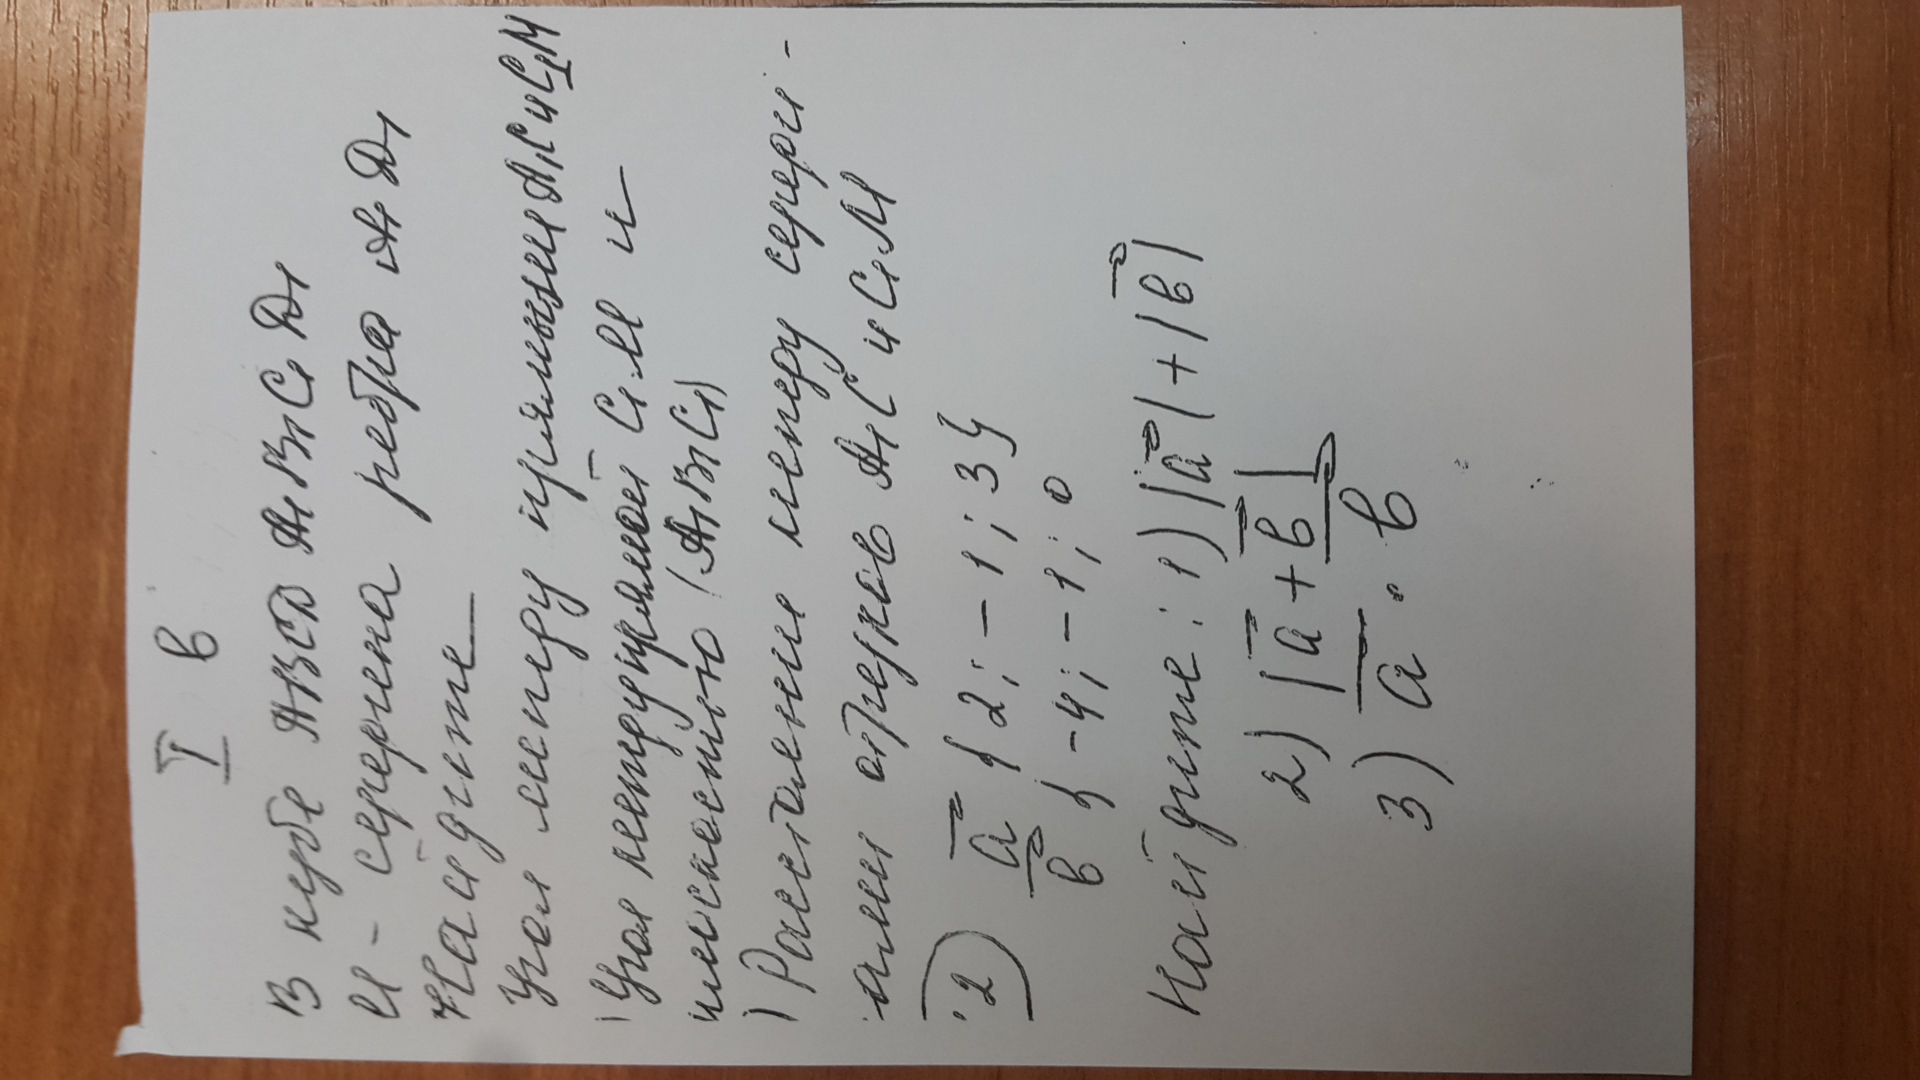 I в
В кубе ABCD A₁B₁C₁D₁
М - середина ребра A₁D₁
Найдите
Угол между прямыми A₁C и C₁M
) Угол между прямой C₁M и
плоскостью (A₁B₁C₁)
) Расстояние между середи-
нами отрезков A₁C и C₁M
2) a⃗ {2; -1; 3}
b⃗ {-4; -1; 0
Найдите: 1) |a⃗| + |b⃗|
2) |a⃗ + b⃗|
3) a⃗ · b⃗